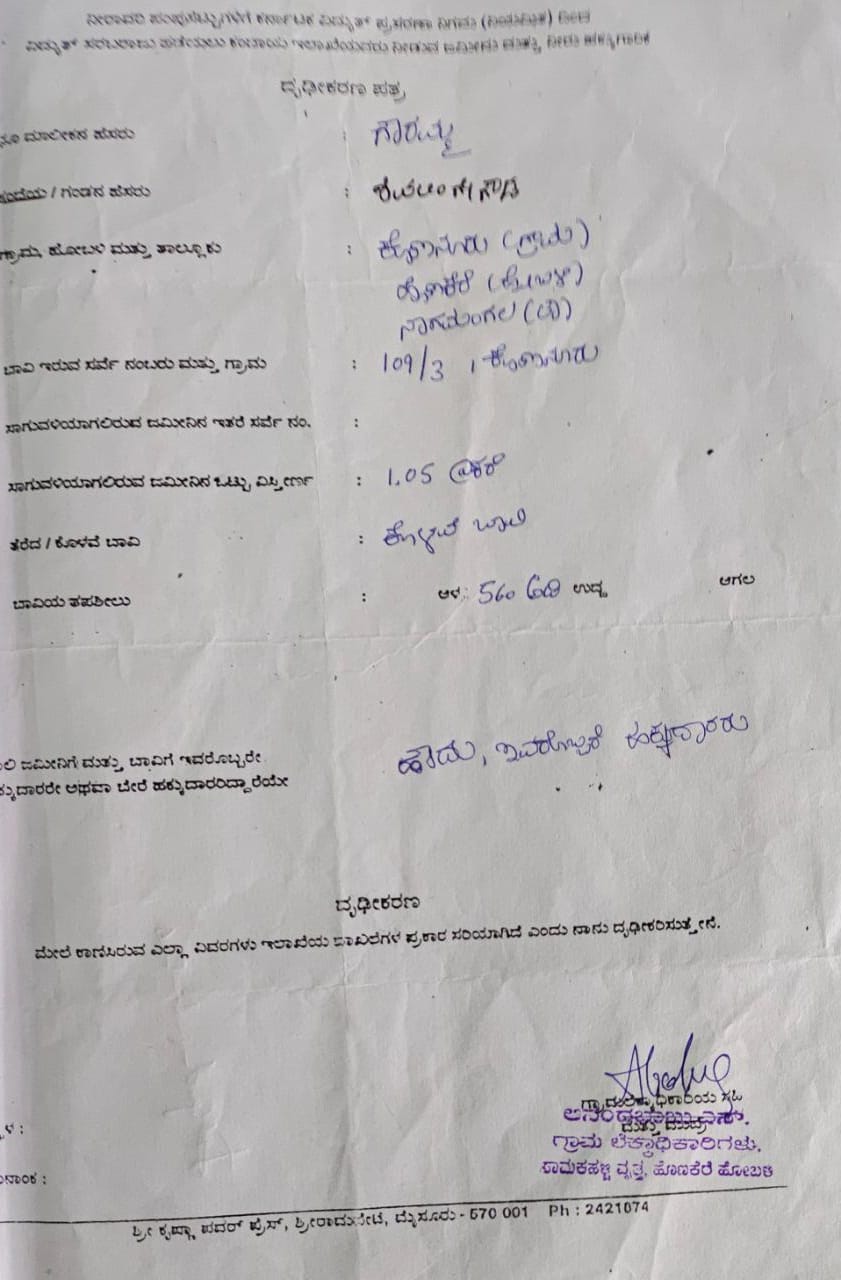 ನೀರಾವರಿ ಪಂಪ್‌ಸೆಟ್ಟುಗಳಿಗೆ ಕರ್ನಾಟಕ ವಿದ್ಯುತ್ ಪ್ರಸರಣಾ ನಿಗಮ (ನಿಯಮಿತ) ದಿಂದ
ವಿದ್ಯುತ್ ಸರಬರಾಜು ಪಡೆಯಲು ಕಂದಾಯ ಇಲಾಖೆಯವರು ನೀಡುವ ಜಮೀನು ಮತ್ತು ನೀರು ಹಕ್ಕಿಗಾಗಿ
ದೃಢೀಕರಣ ಪತ್ರ
ಮಾಲೀಕನ ಹೆಸರು : ಗೌರಮ್ಮ
ತಂದೆಯ / ಗಂಡನ ಹೆಸರು :
ಗ್ರಾಮ, ಹೋಬಳಿ ಮತ್ತು ತಾಲ್ಲೂಕು : (ಗ್ರಾಮ)
ಹೊಣಕೆರೆ (ಹೋಬಳಿ)
ನಾಗಮಂಗಲ (ತಾ)
ಬಾವಿ ಇರುವ ಸರ್ವೆ ನಂಬರು ಮತ್ತು ಗ್ರಾಮ : 109/3 ,
ಸಾಗುವಳಿಯಾಗಲಿರುವ ಜಮೀನಿನ ಇತರೆ ಸರ್ವೆ ನಂ. :
ಸಾಗುವಳಿಯಾಗಲಿರುವ ಜಮೀನಿನ ಒಟ್ಟು ವಿಸ್ತೀರ್ಣ : 1.05 ಎಕರೆ
ತೆರೆದ / ಕೊಳವೆ ಬಾವಿ : ಕೊಳವೆ ಬಾವಿ
ಬಾವಿಯ ತಪಶೀಲು : ಆಳ : 560 ಅಡಿ ಉದ್ದ ಅಗಲ
ಜಮೀನಿಗೆ ಮತ್ತು ಬಾವಿಗೆ ಇವರೊಬ್ಬರೇ
ಹಕ್ಕುದಾರರೇ ಅಥವಾ ಬೇರೆ ಹಕ್ಕುದಾರರಿದ್ದಾರೆಯೇ
ಹೌದು, ಇವರೊಬ್ಬರೆ ಹಕ್ಕುದಾರರು
ದೃಢೀಕರಣ
ಮೇಲೆ ಕಾಣಿಸಿರುವ ಎಲ್ಲಾ ವಿವರಗಳು ಇಲಾಖೆಯ ದಾಖಲೆಗಳ ಪ್ರಕಾರ ಸರಿಯಾಗಿದೆ ಎಂದು ನಾನು ದೃಢೀಕರಿಸುತ್ತೇನೆ.
ಗ್ರಾಮಲೆಕ್ಕಾಧಿಕಾರಿಯ ಸಹಿ
ಮತ್ತು ಮುದ್ರೆ
ಆನಂದಬಾಬು ಎಸ್.
ಗ್ರಾಮ ಲೆಕ್ಕಾಧಿಕಾರಿಗಳು,
ಸಾಮಕಹಳ್ಳಿ ವೃತ್ತ, ಹೊಣಕೆರೆ ಹೋಬಳಿ
ಶ್ರೀ ಕೃಷ್ಣಾ ಪವರ್ ಪ್ರೆಸ್, ಶ್ರೀರಾಮಪೇಟೆ, ಮೈಸೂರು - 570 001 Ph : 2421074